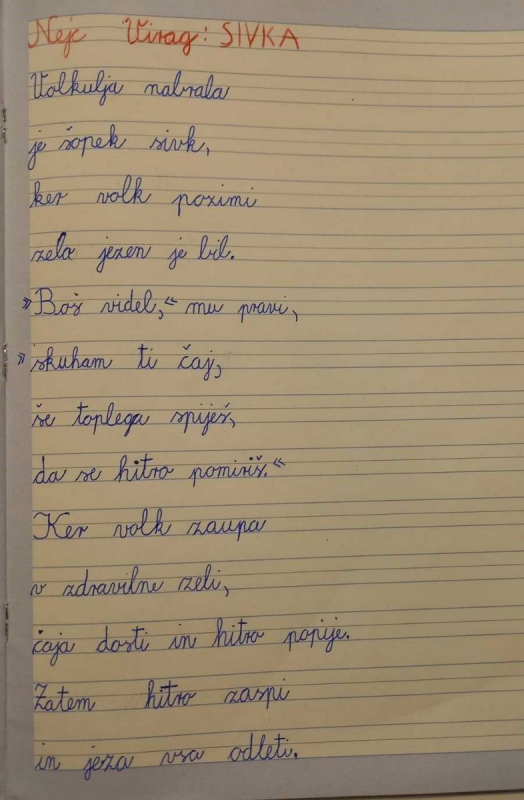 Nejc Virag: SIVKA
Volkulja nabrala
je šopek sivk,
ker volk pozimi
zelo jezen je bil.
»Boš videl,« mu pravi,
»skuham ti čaj,
še toplega spiješ,
da se hitro pomiriš.«
Ker volk zaupa
v zdravilne zeli,
čaja dosti in hitro popije.
Zatem hitro zaspi
in jeza vsa odleti.